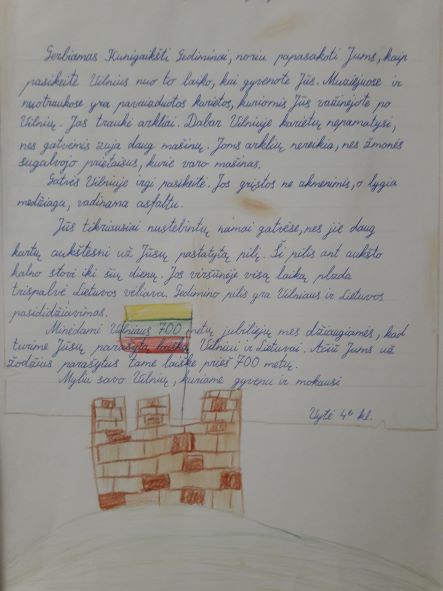 Gerbiamas Kunigaikšti Gediminai, noriu papasakoti Jums, kaip
pasikeitė Vilnius nuo to laiko, kai gyvenote Jūs. Muziejuose ir
nuotraukose yra pavaizduotos karietos, kuriomis Jūs važinėjote po
Vilnių. Jas traukė arkliai. Dabar Vilniuje karietų nepamatysi,
nes gatvėmis zuja daug mašinų. Joms arklių nereikia, nes žmonės
sugalvojo prietaisus, kurie varo mašinas.
Gatvės Vilniuje irgi pasikeitė. Jos grįstos ne akmenimis, o lygia
medžiaga, vadinama asfaltu.
Jūs tikriausiai nustebintų namai gatvėse, nes jie daug
kartų aukštesni už Jūsų pastatytą pilį. Ši pilis ant aukšto
kalno stovi iki šių dienų. Jos viršūnėje visą laiką plazda
trispalvė Lietuvos vėliava. Gedimino pilis yra Vilniaus ir Lietuvos
pasididžiavimas.
Minėdami Vilniaus 700 metų jubiliejų mes džiaugiamės, kad
turime Jūsų parašytą laišką Vilniui ir Lietuvai. Ačiū Jums už
žodžius parašytus tame laiške prieš 700 metų.
Myliu savo Vilnių, kuriame gyvenu ir mokausi
Ugtė 4 kl.